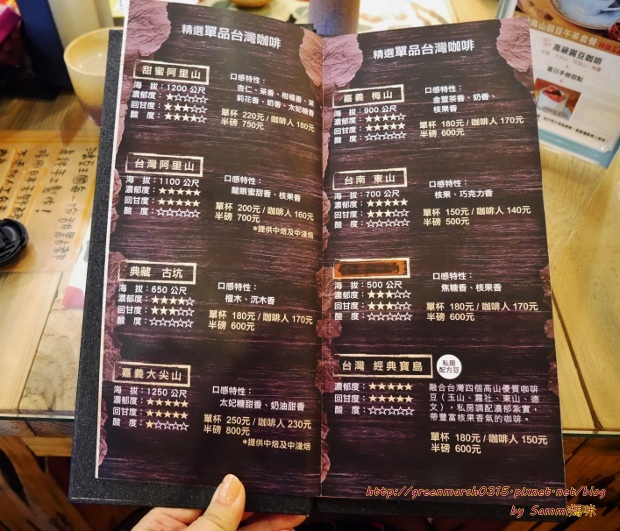 精選單品台灣咖啡
甜蜜阿里山
海 拔：1200 公尺
濃郁度：★★★☆☆
回甘度：★★☆☆☆
酸 度：★☆☆☆☆
口感特性：
杏仁、茶香、柑橘香、葉
莉花香、奶香、太妃糖香
單杯 220元 / 咖啡人 180元
半磅 750元
台灣阿里山
海 拔：1100 公尺
濃郁度：★★★★★
回甘度：★★★★★
酸 度：☆☆☆☆☆
口感特性：
龍眼蜜甜香、核果香
單杯 200元 / 咖啡人 160元
半磅 700元
*提供中焙及中淺焙
典藏 古坑
海 拔：650 公尺
濃郁度：★★★★☆
回甘度：★★★★☆
酸 度：☆☆☆☆☆
口感特性：
檀木、沉木香
單杯 180元 / 咖啡人 170元
半磅 600元
嘉義大尖山
海 拔：1250 公尺
濃郁度：★★★★★
回甘度：★★★★★
酸 度：★☆☆☆☆
口感特性：
太妃糖甜香、奶油甜香
單杯 250元 / 咖啡人 230元
半磅 800元
*提供中焙及中淺焙
精選單品台灣咖啡
嘉義 梅山
海 拔：900 公尺
濃郁度：★★★★☆
回甘度：★★★★☆
酸 度：☆☆☆☆☆
口感特性：
金萱茶香、奶香、
核果香
單杯 180元 / 咖啡人 170元
半磅 500元
台南 東山
海 拔：700 公尺
濃郁度：★★★★☆
回甘度：★★★★☆
酸 度：☆☆☆☆☆
口感特性：
核果、巧克力香
單杯 150元 / 咖啡人 140元
半磅 500元
海 拔：500 公尺
濃郁度：★★★☆☆
回甘度：★★★★☆
酸 度：☆☆☆☆☆
口感特性：
焦糖香、核果香
單杯 180元 / 咖啡人 170元
半磅 600元
台灣 經典寶島
私房
配方豆
濃郁度：★★★★★
回甘度：★★★★★
酸 度：☆☆☆☆☆
融合台灣四個高山優質咖啡
豆（玉山、霧社、東山、德
文），私房調配濃郁紮實，
帶豐富核果香氣的咖啡。
單杯 180元 / 咖啡人 150元
半磅 600元
http://greenmarsh0315.pixnet.net/blog
by Sammi媽咪